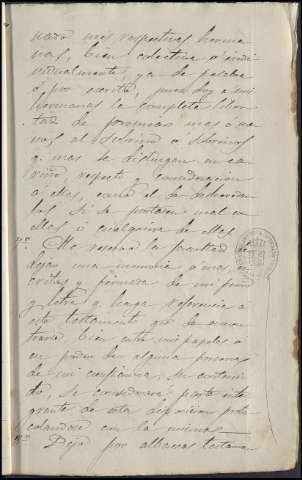 nado mis respectivas herma
nas, bien colectiva ó indi
vidualmente, ya de palabra
ó por escrito, pues doy a mis
hermanas la completa liber
tad de premiar mas ó me
nos al sobrino ó sobrinos
q. mas se distingan en ca
riño, respeto y consideracion
á ellas, como el de desheredar
los si se portasen mal con
ellas ó cualquiera de ellas
Me reservo la facultad
dejar una memoria ó mas, es
critas y firmadas de mi puño
y letra q. haga referencia a
este testamento que se encon
trará bien entre mis papeles ó
en poder de alguna persona
de mi confianza, su conteni
do, se considerará parte inte
grante de esta disposicion proto
colandose con la misma
Dejo por albaceas testa